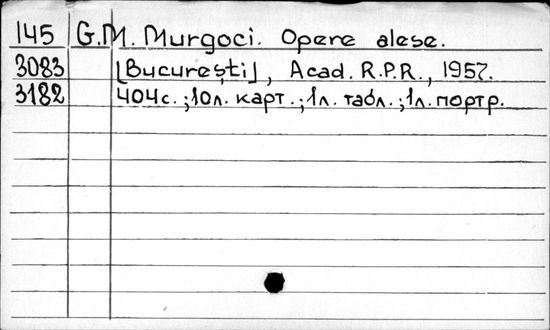 145 G.M. Murgoci. Opere alese.
3083 [București], Acad. R.P.R., 1957.
3182 404с.; 10л. карт.; 1л. табл.; 1л. портр.